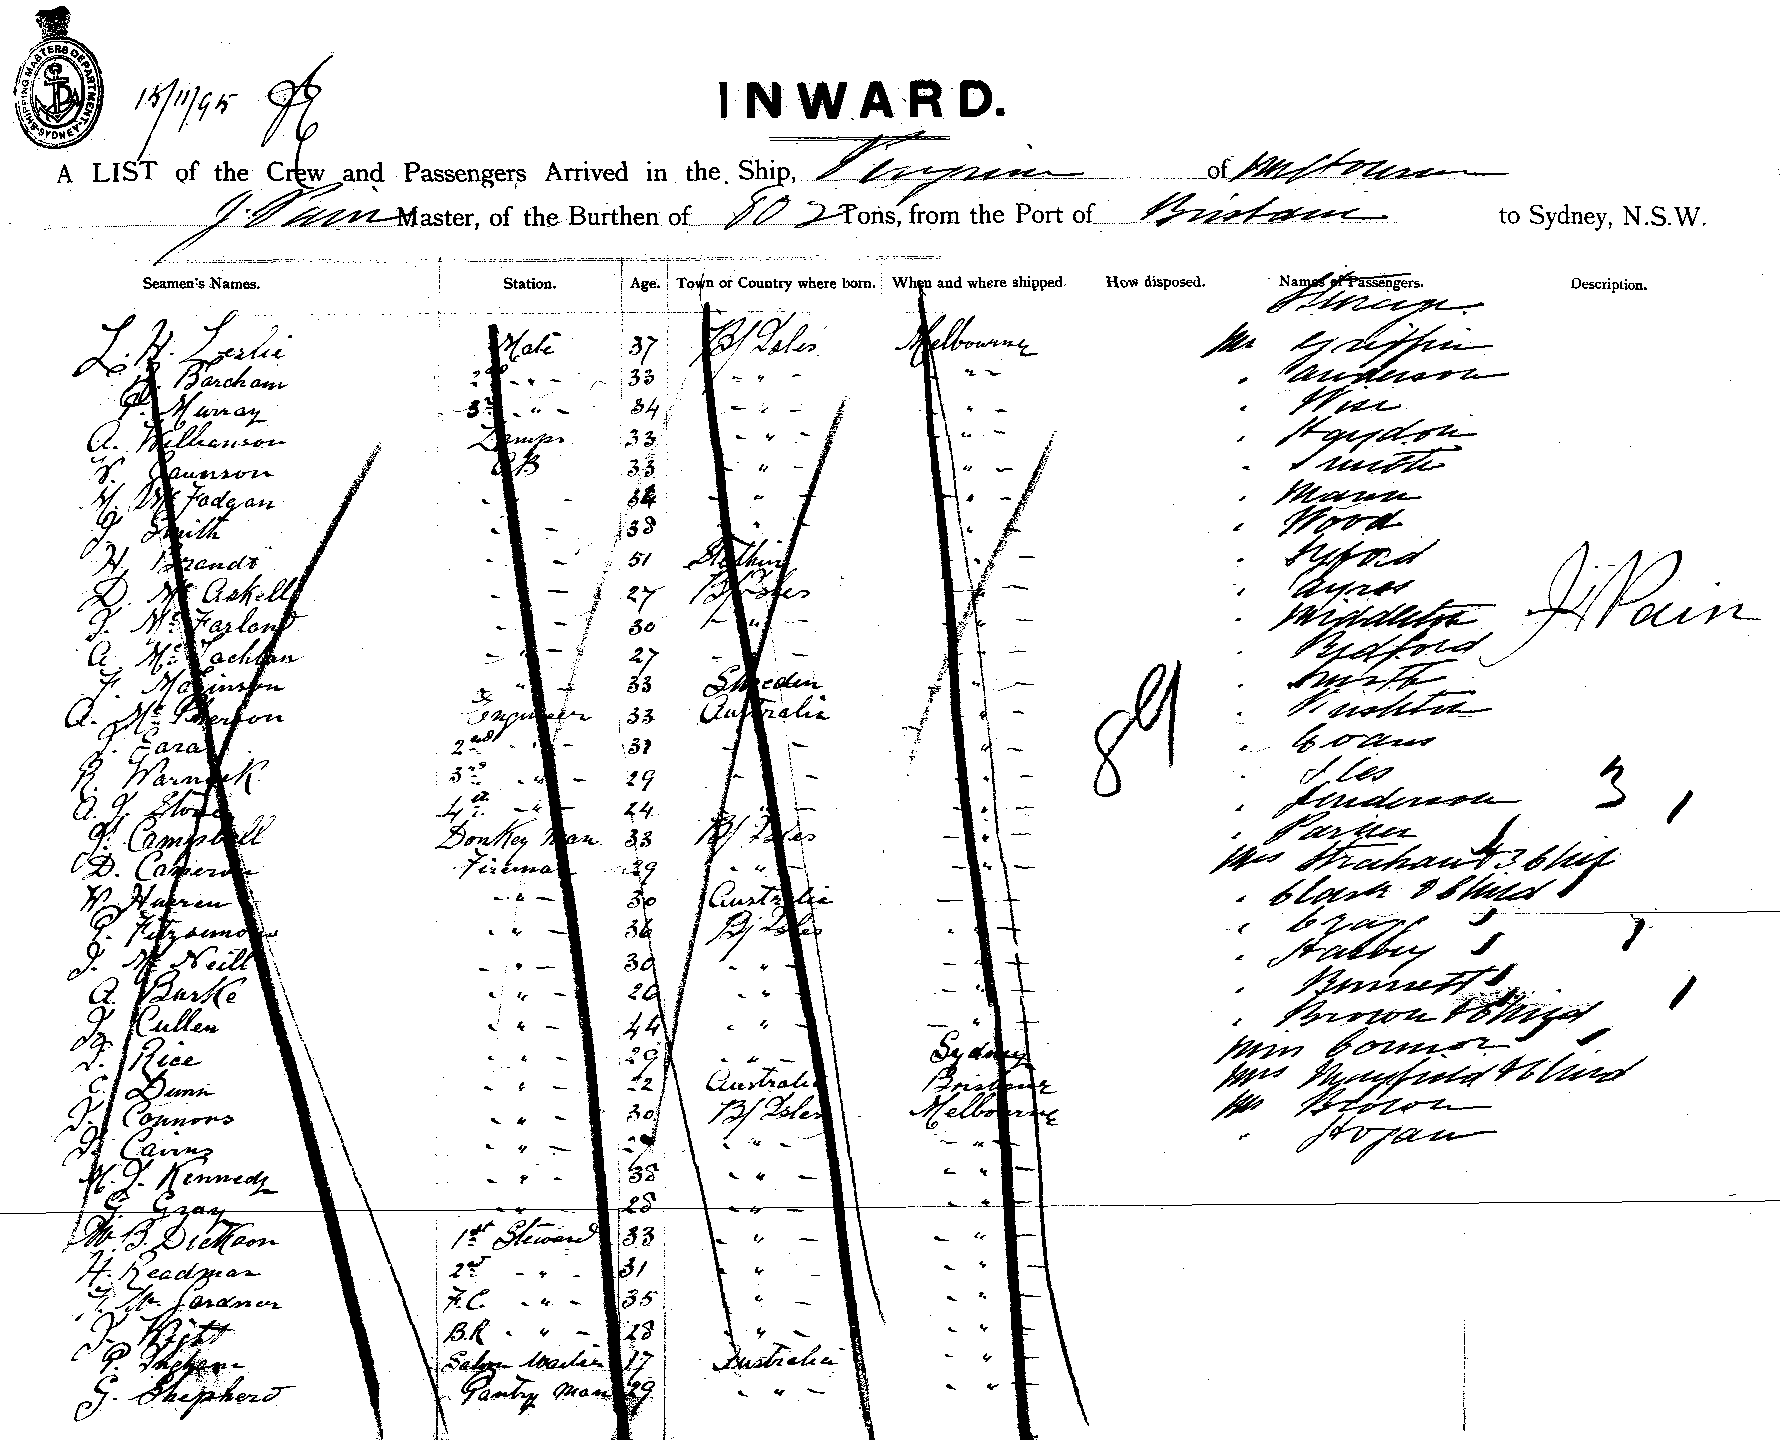 SHIPPING MASTERS DEPARTMENT SYDNEY
15/11/95
INWARD.
A LIST of the Crew and Passengers Arrived in the Ship, of Melbourne
J. Pain Master, of the Burthen of 802 Tons, from the Port of Brisbane to Sydney, N.S.W.
Seamen's Names. Station. Age. Town or Country where born. When and where shipped. How disposed. Names of Passengers. Description.
Steerage
L. H. Leslie Mate 37 B/ Isles Melbourne Mr Griffin
Barcham 2nd - " - 33 - " - - " - " Anderson
Murray 3rd - " - 34 - " - - " - " Wise
A. Williamson Lamps 33 - " - - " - " Haydon
Jaunson AB 33 - " - - " - " Smith
McFadgan - " - 34 - " - - " - " Mann
J. Smith - " - 38 - " - - " - " Wood
H. Brandt - " - 51 - " - " Syford
D. McAskell - " - 27 B/ Isles - " - " Ayres
J. McFarland - " - 30 - " - - " - " Middleton
J. Pain
A. McLachlan - " - 27 - " - - " - " Bedford
Mckinson - " - 33 Sweden - " - " Smith
A. McPherson Engineer 33 Australia - " -
J. Gara 2nd - " - 31 - " - - " - " Evans
R. Warnock 3rd - " - 29 - " - - " - " Iles
A. J. Stone 4th - " - 24 - " - - " - " Henderson 3 1
J. Campbell Donkey Man 33 B/ Isles - " - " Parker
D. Cameron Fireman 29 - " - - " - Mrs Strahan & 3 Chil
W. Warren - " - 30 Australia - " - " Clark & Child
Fitzsimons - " - 36 B/ Isles - " - " Gray
J. McNeill - " - 30 - " - - " -
A. Burke - " - 26 - " - - " - " Bennett
J. Cullen - " - 44 - " - - " - " Brown & Child 1
Rice - " - 29 - " - Sydney Miss Connor
Dunn - " - 22 Australia Brisbane Mrs & Child
J. Connors - " - 30 B/ Isles Melbourne Mr Brown
J. Cairns - " - - " - - " - " Hogan
M. J. Kennedy - " - 38 - " - - " -
G. Gray - " - 28 - " - - " -
W. B. Dickson 1st Steward 33 - " - - " -
H. Readman 2nd - " - 31 - " - - " -
Gardner F.C. - " - 35 - " - - " -
B.R. - " - 28 - " - - " -
P. Ingham Saloon Waiter 17 Australia - " -
G. Shepherd Pantry Man 29 - " - - " -